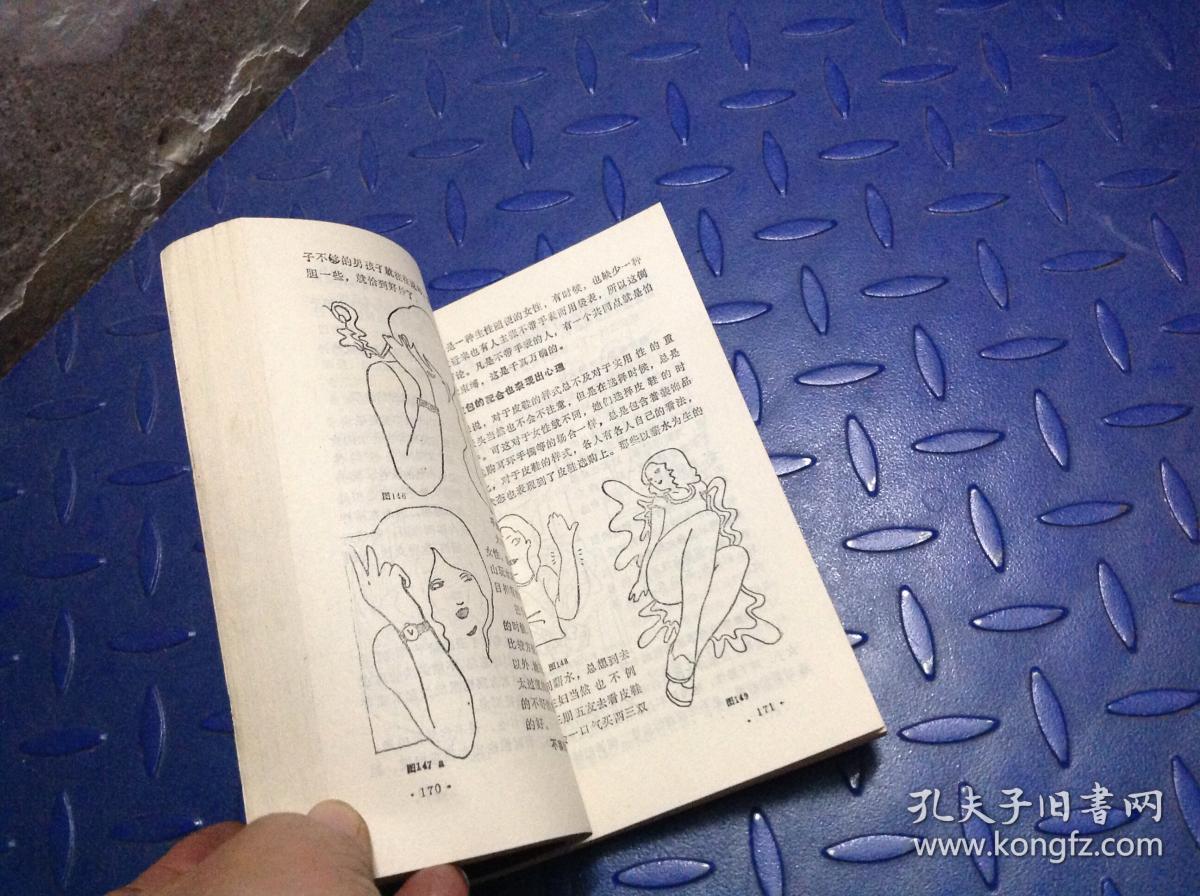 子不够的男孩子就
胆一些，就恰到好处了
图146
图147 a
·170·
女性，
山玩
目相
的时候
比较方
以外，
太过
的不好
的好、
是一种生性固执的女性，有时候，也缺少一种
近来也有人主张不带手表而用袋表，所以这倒
论，凡是不带手表的人，有一个共同点就是怕
束缚，这是千真万确的。
包的配合也表现出心理
说，对于皮鞋的样式总不及对于实用性的重
头当然也不会不注意，但是在选择时候，总是
。可这对于女性就不同，她们选择皮鞋的时
选购耳环手镯等的场合一样，总是包含着装饰品
，对于皮鞋的样式，各人有各人自己的看法，
状态也表现到了皮鞋选购上。那些以薪水为生的
图148
图149
到薪水，总想到去
主妇当然也不例
三朋五友去看皮鞋
一口气买两三双
·171·
孔夫子旧書网
www.kongfz.com